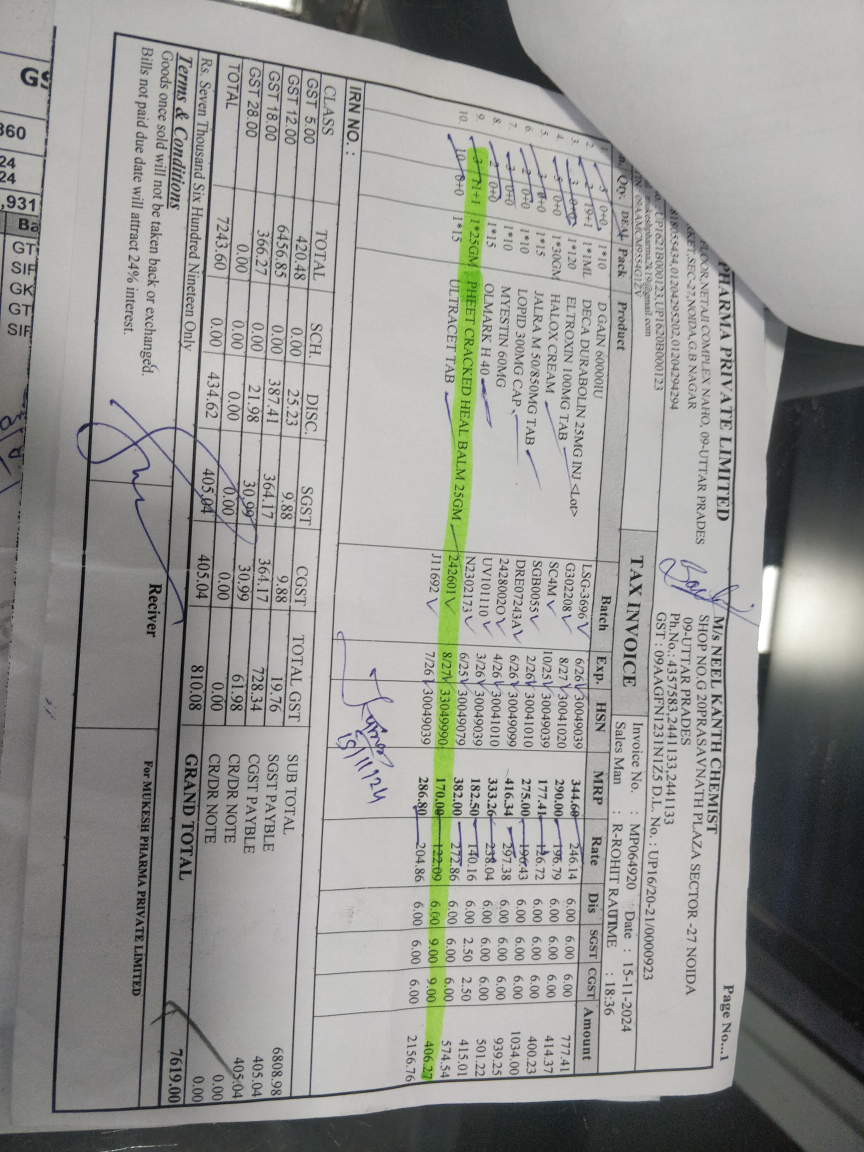 PHARMA PRIVATE LIMITED
FLOOR,NETAJI COMPLEX NAHO, 09-UTTAR PRADES
SEC-27,NOIDA,G.B NAGAR
01204295202,01204294294
UP1621B000123,UP1620B000123
mukeshpharma2k19@gmail.com
09AAMCM9554G1ZV
Page No...1
M/s NEEL KANTH CHEMIST
SHOP NO.G 20PRASAVNATH PLAZA SECTOR -27 NOIDA
09-UTTAR PRADES
Ph.No.: 4357583,2441133,2441133
GST : 09AAGFN1231N1Z5 D.L. No. : UP16/20-21/0000923
TAX INVOICE
Invoice No. : MP064920 Date : 15-11-2024
Sales Man : R-ROHIT RAITIME : 18:36
Qty. DEAL Pack Product Batch Exp. HSN MRP Rate Dis SGST CGST Amount
1. 3 0+0 1*10 D GAIN 60000IU LSG-3696 6/26 30049039 344.60 246.14 6.00 6.00 6.00 777.41
2. 2 19+1 1*1ML DECA DURABOLIN 25MG INJ <Lot> G302208 8/27 30041020 290.00 196.79 6.00 6.00 6.00 414.37
3. 3 0+0 1*120 ELTROXIN 100MG TAB SC4M 10/25 30049039 177.41 126.72 6.00 6.00 6.00 400.23
4. 5 0+0 1*30GM HALOX CREAM SGB0055 2/26 30041010 275.00 196.43 6.00 6.00 6.00 1034.00
5. 3 0+0 1*15 JALRA M 50/850MG TAB DRE07243A 6/26 30049099 416.34 297.38 6.00 6.00 6.00 939.25
6. 2 0+0 1*10 LOPID 300MG CAP 2428002O 4/26 30041010 333.26 238.04 6.00 6.00 6.00 501.22
7. 3 0+0 1*10 MYESTIN 60MG UV101110 3/26 30049039 182.50 140.16 6.00 2.50 2.50 415.01
8. 2 0+0 1*15 OLMARK H 40 N2302173 6/25 30049079 382.00 272.86 6.00 6.00 6.00 574.54
9. 3 11+1 1*25GM PHEET CRACKED HEAL BALM 25GM 242601 8/27 33049990 170.00 122.09 6.00 9.00 9.00 406.27
10. 10 0+0 1*15 ULTRACET TAB J11692 7/26 30049039 286.80 204.86 6.00 6.00 6.00 2156.76
15/11/24
IRN NO. :
CLASS TOTAL SCH. DISC. SGST CGST TOTAL GST
GST 5.00 420.48 0.00 25.23 9.88 9.88 19.76
GST 12.00 6456.85 0.00 387.41 364.17 364.17 728.34
GST 18.00 366.27 0.00 21.98 30.99 30.99 61.98
GST 28.00 0.00 0.00 0.00 0.00 0.00 0.00
TOTAL 7243.60 0.00 434.62 405.04 405.04 810.08
SUB TOTAL 6808.98
SGST PAYBLE 405.04
CGST PAYBLE 405.04
CR/DR NOTE 0.00
CR/DR NOTE 0.00
Rs. Seven Thousand Six Hundred Nineteen Only
GRAND TOTAL 7619.00
Terms & Conditions
Goods once sold will not be taken back or exchanged.
Bills not paid due date will attract 24% interest.
Reciver
For MUKESH PHARMA PRIVATE LIMITED
GS
360
24
24
,931
Ba
GT
SIF
GK
GT
SIF